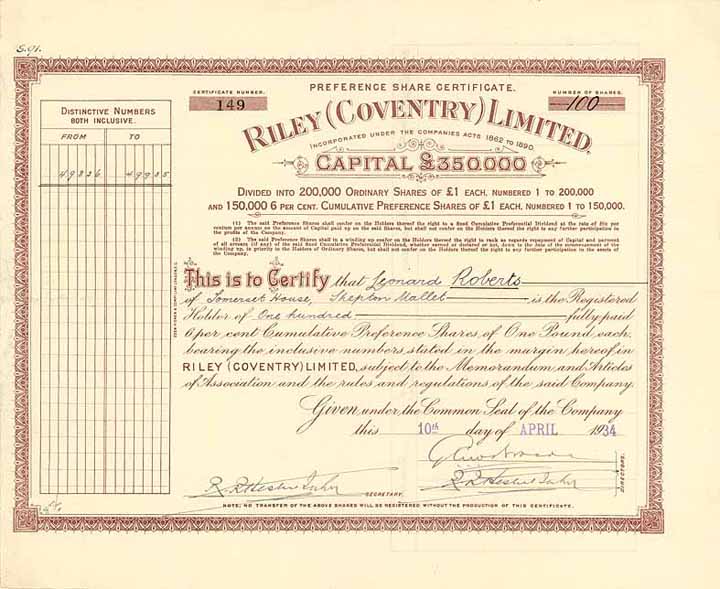 5.91.
CERTIFICATE NUMBER.
149
PREFERENCE SHARE CERTIFICATE.
NUMBER OF SHARES.
100
RILEY (COVENTRY) LIMITED.
INCORPORATED UNDER THE COMPANIES ACTS 1862 TO 1890.
CAPITAL £350,000
DIVIDED INTO 200,000 ORDINARY SHARES OF £1 EACH, NUMBERED 1 TO 200,000
AND 150,000 6 PER CENT. CUMULATIVE PREFERENCE SHARES OF £1 EACH, NUMBERED 1 TO 150,000.
(1) The said Preference Shares shall confer on the Holders thereof the right to a fixed Cumulative Preferential Dividend at the rate of Six per
centum per annum on the amount of Capital paid up on the said Shares, but shall not confer on the Holders thereof the right to any further participation in
the profits of the Company.
(2) The said Preference Shares shall in a winding up confer on the Holders thereof the right to rank as regards repayment of Capital and payment
of all arrears (if any) of the said fixed Cumulative Preferential Dividend, whether earned or declared or not, down to the date of the commencement of the
winding up, in priority to the Holders of Ordinary Shares, but shall not confer on the Holders thereof the right to any further participation in the assets
of the Company.
DISTINCTIVE NUMBERS
BOTH INCLUSIVE.
FROM TO
49836 49935
This is to Certify that Leonard Roberts
of Somerset House, Shepton Mallet is the Registered
Holder of One hundred fully paid
6 per cent Cumulative Preference Shares of One Pound each,
bearing the inclusive numbers stated in the margin hereof in
RILEY (COVENTRY) LIMITED, subject to the Memorandum and Articles
of Association and the rules and regulations of the said Company.
Given under the Common Seal of the Company
this 10th day of APRIL 1934
DIRECTORS.
SECRETARY.
NOTE; NO TRANSFER OF THE ABOVE SHARES WILL BE REGISTERED WITHOUT THE PRODUCTION OF THIS CERTIFICATE.